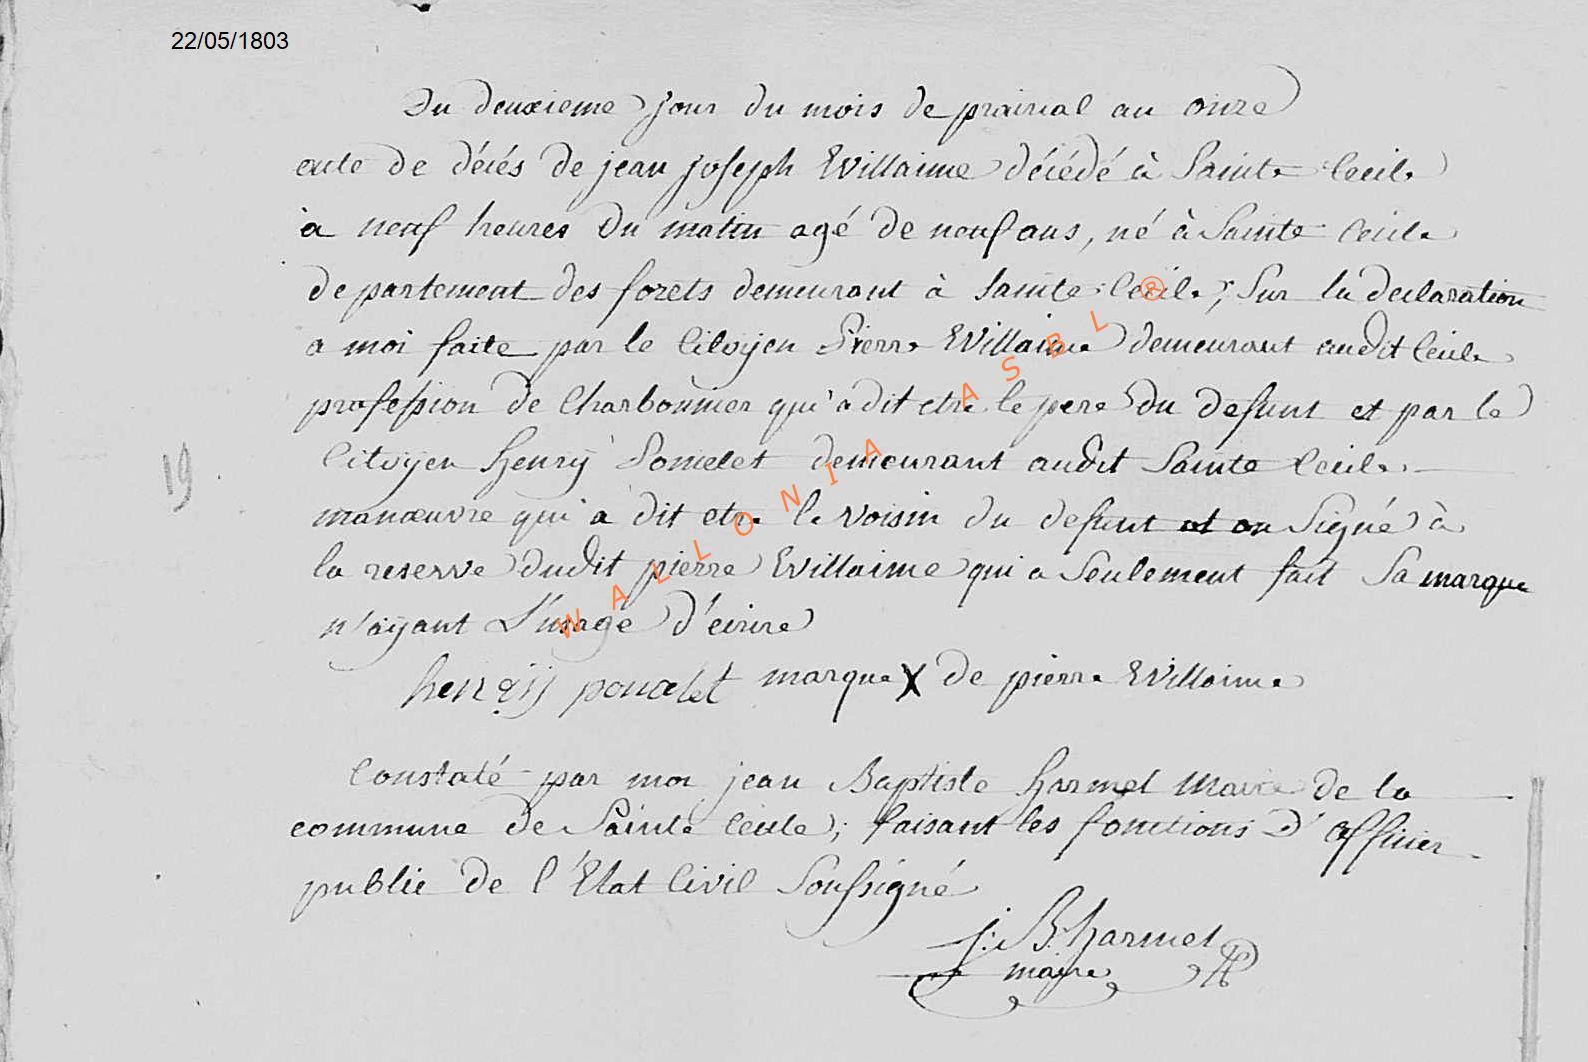 22/05/1803
Du deuxieme jour du mois de prairial an onze
acte de décés de jean joseph Willaime décédé à Sainte Cecile
a neuf heures du matin agé de neuf ans, né à Sainte Cecile
departement des forets demeurant à Sainte Cecile, Sur la declaration
a moi faite par le Citoyen Pierre Willaime demeurant audit Cecile
profession de Charbonnier qui a dit etre le pere du defunt et par le
Citoyen henry Poncelet demeurant audit Sainte Cecile
19
manœuvre qui a dit etre le voisin du defunt et on Signé à
la reserve dudit pierre Willaime qui a Seulement fait Sa marque
n'ayant L'usage d'ecrire
henry poncelet marque X de pierre Willaime
Constaté par moi jean Baptiste harmel Maire de la
commune de Sainte Cecile, faisant les fonctions d'officier
public de l'Etat Civil Soussigné
j: B: harmel
maire
WALLONIA ASBL ®